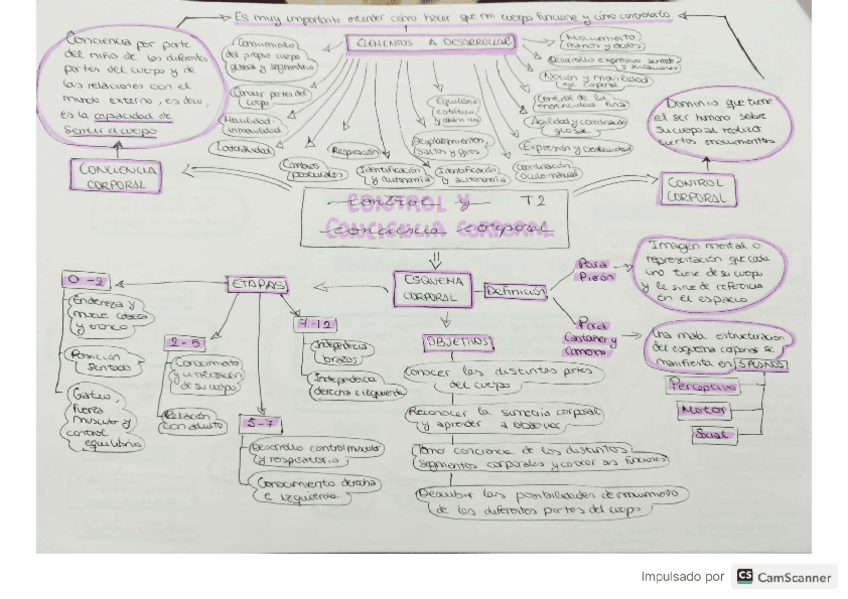 Es muy importante entender cómo hacer que mi cuerpo funcione y cómo controlarlo
ELEMENTOS A DESARROLLAR
Conciencia por parte
del niño de las diferentes
partes del cuerpo y de
las relaciones con el
mundo externo, es decir,
es la capacidad de
sentir el cuerpo
CONCIENCIA
CORPORAL
Conocimiento
del propio cuerpo
global y segmentario
Conocer partes del
cuerpo
Movilidad-
inmovilidad
Lateralidad
Cambios
posturales
Respiración
Identificación
y autonomía
Equilibrio
estático y
dinámico
Desplazamientos,
saltos y giros
Identificación
y autonomía
Movimiento
manos y dedos
Desarrollo expresivo sentido
y
Noción y movilidad
eje corporal
Control de la
motricidad fina
Agilidad y coordinación
global
Expresión y creatividad
Coordinación
óculo-manual
Dominio que tiene
el ser humano sobre
su cuerpo al realizar
ciertos movimientos
CONTROL
CORPORAL
CONTROL Y T2
CONCIENCIA CORPORAL
ESQUEMA
CORPORAL
Definición
Para
Pierón
Imagen mental o
representación que cada
uno tiene de su cuerpo
y le sirve de referencia
en el espacio
Para
Castañer y
Camerino
Una mala estructuración
del esquema corporal se
manifiesta en 3 PLANOS
Perceptivo
Motor
Social
ETAPAS
0-2
Endereza y
mueve cabeza
y tronco
Posición
sentado
Gateo,
fuerza
muscular y
control
equilibrio
2-5
Conocimiento
y utilización
de su cuerpo
Relación
con adulto
5-7
Desarrollo control muscular
y respiratorio
Conocimiento derecha
e izquierda
7-12
Independencia
brazos
Independencia
derecha e izquierda
OBJETIVOS
Conocer las distintas partes
del cuerpo
Reconocer la simetría corporal
y aprender a observar
Tomar conciencia de los distintos
segmentos corporales y conocer sus funciones
Descubrir las posibilidades de movimiento
de las diferentes partes del cuerpo
Impulsado por CS CamScanner